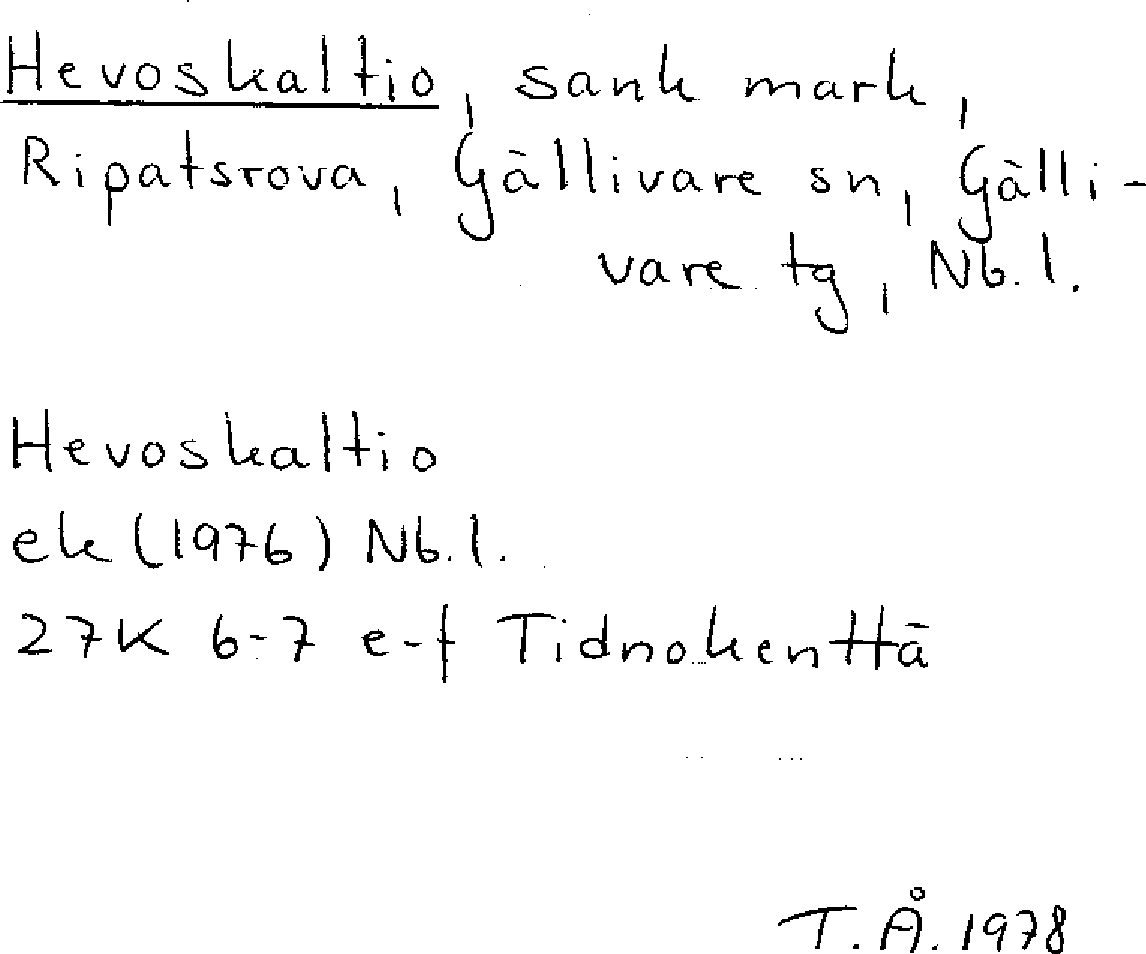 Hevoskaltio, sank mark,
Ripatsrova, Gällivare sn, Gälli-
vare tg, Nb. l.
Hevoskaltio
ek (1976) Nb. l.
27K 6-7 e-f Tidnokenttä
T. Å. 1978